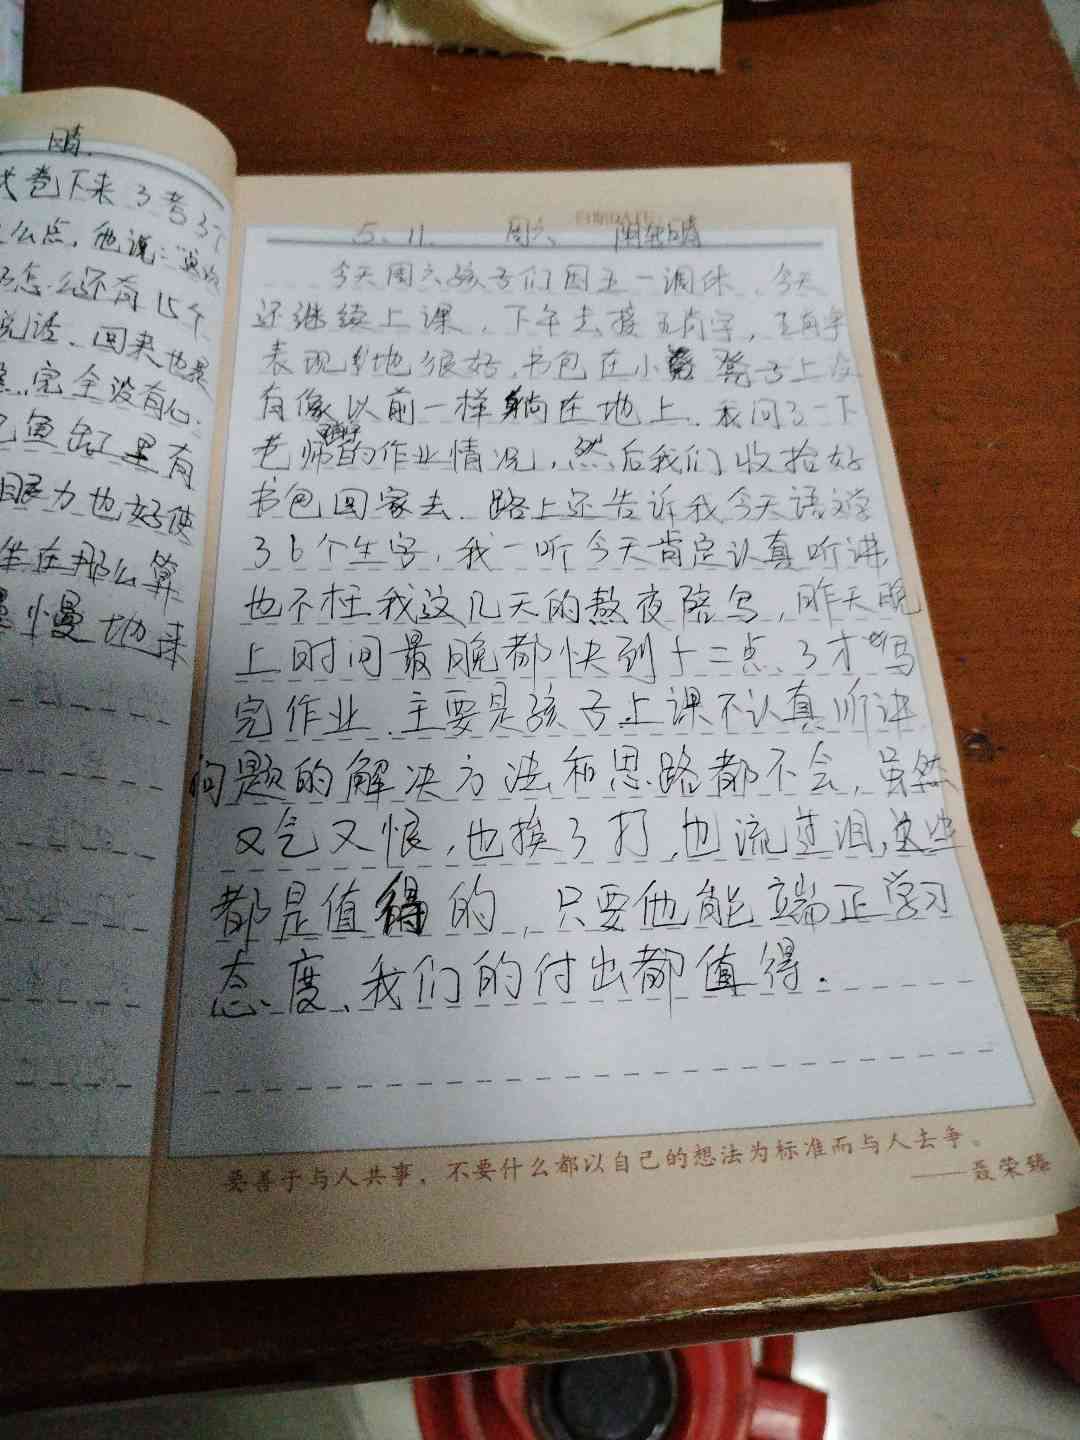 晴.
卷下来了考了
么点，他说：“
怎么还有15个
说话、回来也是
完全没有心.
鱼缸里有
眼力也好使
坐在那么算
慢慢地来
5. 11. 周六 阴转晴
今天周六孩子们因五一调休，今天
还继续上课，下午去接
表现地很好，书包在小凳子上没
有像以前一样躺在地上.我问了一下
老师的作业情况，然后我们收拾好
书包回家去.路上还告诉我今天语文学
了6个生字，我一听今天肯定认真听讲
也不枉我这几天的熬夜陪写，昨天晚
上时间最晚都快到十二点、了才写
完作业.主要是孩子上课不认真听讲
问题的解决方法和思路都不会，虽然
又气又恨，也挨了打，也流过泪，这些
都是值得的，只要他能端正学习
态度、我们的付出都值得.
要善于与人共事，不要什么都以自己的想法为标准而与人去争。
——聂荣臻